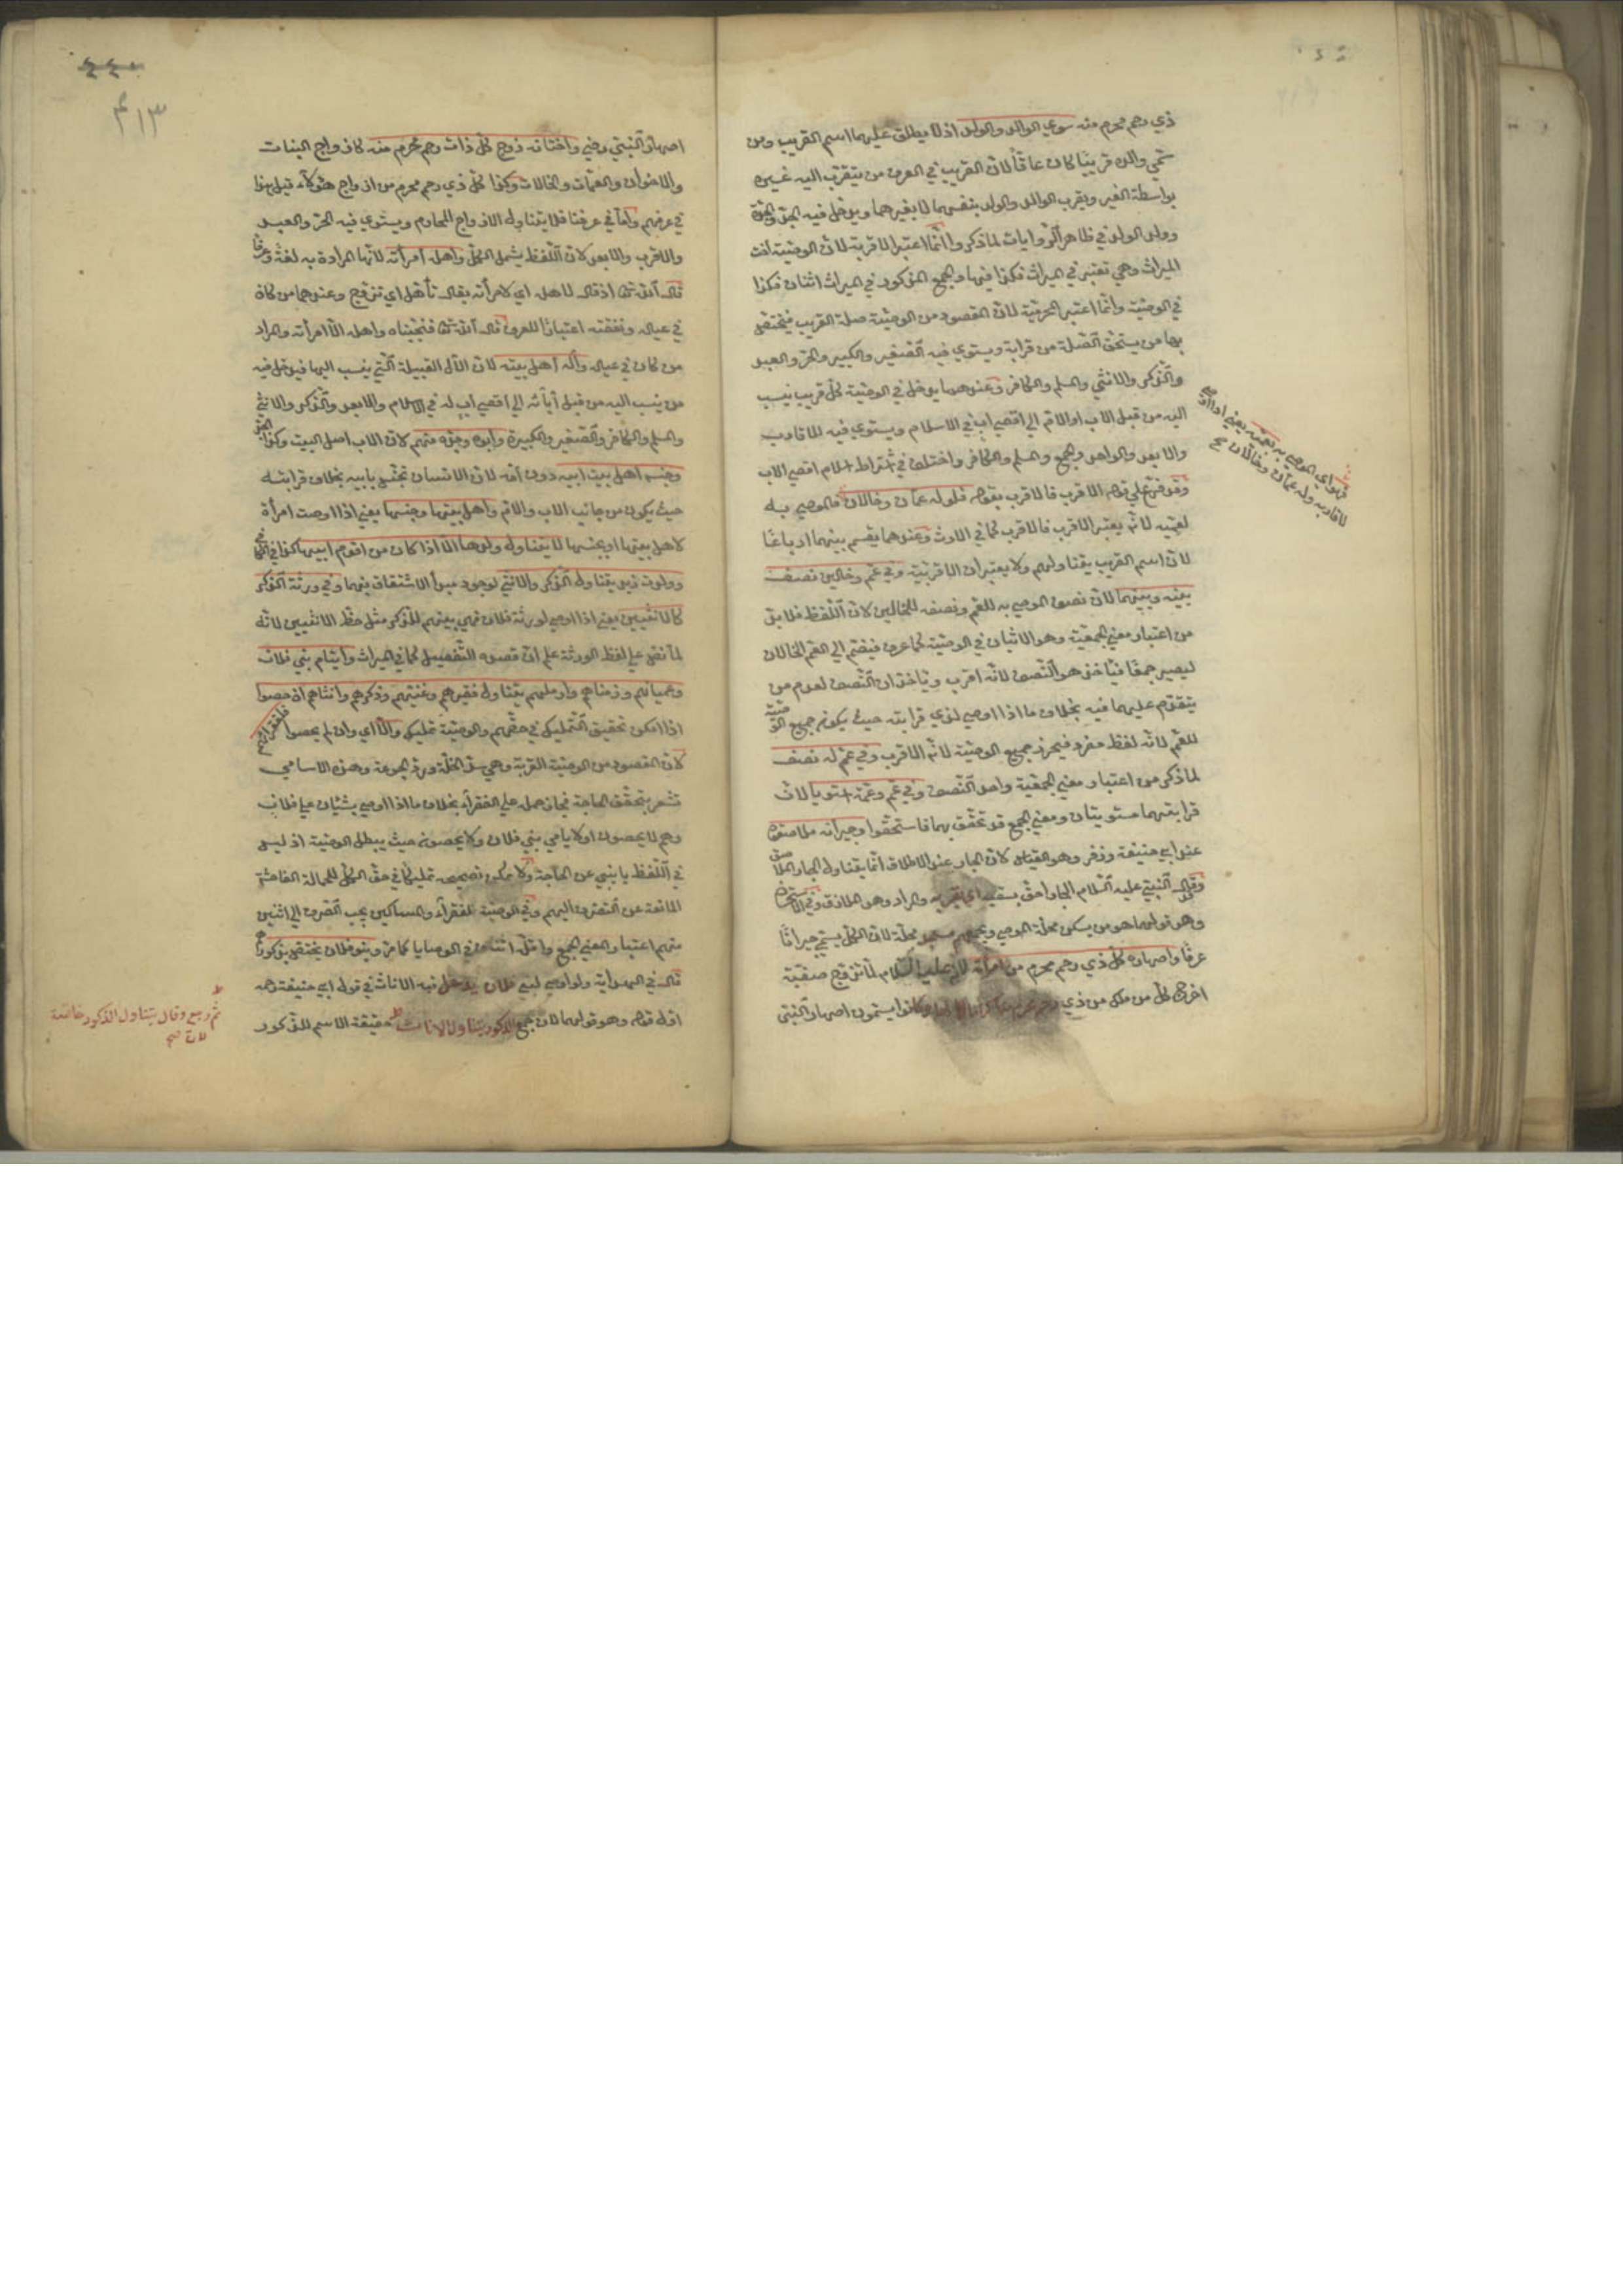 ذي رحم محرم منه سوي الوالد والولد اذ لا يطلق عليهما اسم القريب ومن
سمي والده قريبا كان عاقّا لانّ القريب في العرف من يتقرب اليه غيره
بواسطة الغير ويقرب الوالد والولد بنفسهما لا بغيرهما ويدخل فيه الجد والجدة
وولد الولد في ظاهر الروايات لما ذكر وانّما اعتبر الاقربة لانّ الوصيّة اخت
الميراث وهي تعتبر في الميراث فكذا فيها والجمع المذكور في الميراث اثنان فكذا
في الوصيّة وانّما اعتبر المحرميّة لانّ المقصود من الوصيّة صلة القريب فيختصّ
بها من يستحق الصّلة من قرابة ويستوي فيه الصّغير والكبير والحرّ والعبد
والذّكر والانثي والمسلم والكافر وعندهما يدخل في الوصيّة كلّ قريب ينسب
اليه من قبل الاب او الامّ الي اقصي اب في الاسلام ويستوي فيه الاقارب
والابعد والواحد والجمع والمسلم والكافر واختلف في اشتراط اسلام اقصي الاب
وقد فرّع علي قوله الاقرب فالاقرب بقوله فلو له عمّان وخالان فالموصي به
لعمّيه لانّه يعتبر الاقرب فالاقرب كما في الارث وعندهما يقسم بينهما ارباعا
لانّ اسم القريب يتناولهم ولا يعتبران الاقربيّة وفي عمّ وخالين نصف
بينه وبينهما لانّ نصف الموصي به للعمّ ونصفه للخالين لانّ اللّفظ فلا بدّ
من اعتبار معني الجمعيّة وهو الاثنان في الوصيّة كما عرف فيضمّ الي العمّ الخالان
ليصير جمعا فيأخذ هو النّصف لانّه اقرب ويأخذان النّصف لعدم من
يتقدّم عليهما فيه بخلاف ما اذا اوصي لذي قرابته حيث يكون جميع الوصيّة
للعمّ لانّه لفظ مفرد فيحرز جميع الوصيّة لانّه الاقرب وفي عمّ له نصف
لما ذكر من اعتبار معني الجمعيّة واحد النّصف وفي عمّ وعمّة استويا لانّ
قرابتهما مستويتان ومعني الجمع قد تحقّق بهما فاستحقّوا وجيرانه ملاصقوه
عند ابي حنيفة وزفر وهو القياس لانّ الجار عند الاطلاق انّما يتناول الجار الملاصق
وقال النّبيّ عليه السّلام الجار احقّ بسقبه اي بقربه والمراد وهو الملازق وفي الاستحسان
وهو قولهما هو من يسكن محلّة الموصي ويجمعهم مسجد محلّة لانّ الكلّ يسمّي جيرانا
عرفا واصهاره كلّ ذي رحم محرم من امرأته لانّه عليه السّلام لمّا تزوّج صفيّة
اخرج كلّ من ملك من ذي رحم محرم منها اكراما لها وكانوا يسمّون اصهار النّبيّ
فهو اي الموصي به لعمّيه يعني اذا اوصي
لاقاربه وله عمّان وخالان صح
٤٤٠
٤١٣
اصهار النّبيّ وفي واختانه زوج كلّ ذات رحم محرم منه كازواج البنات
والاخوات والعمّات والخالات وكذا كلّ ذي رحم محرم من ازواج هؤلاء قيل هذا
في عرفهم وامّا في عرفنا فلا يتناول الازواج المحارم ويستوي فيه الحرّ والعبد
والاقرب والابعد لانّ اللّفظ يشمل الكلّ واهله امرأته لانّها المرادة به لغة وعرفا
قال اللّه تعا اذ قال لاهله اي لامرأته يقال تأهّل اي تزوّج وعندهما من كان
في عياله ونفقته اعتبارا للعرف قال اللّه تعا فنجّيناه واهله الّا امرأته والمراد
من كان في عياله وآله اهل بيته لانّ الآل القبيلة الّتي ينسب اليها فيدخل فيه
من ينسب اليه من قبل آبائه الي اقصي اب له في الاسلام والابعد والذّكر والانثي
والمسلم والكافر والصّغير والكبيرة وابوه وجدّه منهم لانّ الاب اصل البيت وكذا الجدّ
وجنسه اهل بيت ابيه دون امّه لانّ الانسان يتجنّس بابيه بخلاف قرابته
حيث يكون من جانب الاب والامّ واهل بيتها وجنسها يعني اذا اوصت امرأة
لاهل بيتها او لجنسها لا يتناول ولدها الّا اذا كان من اقوام ابيها كذا في الكافي
وولد زيد يتناول الذّكر والانثي لوجود مبدأ الاشتقاق فيهما وفي ورثة الذّكر
كالانثيين يعني اذا اوصي لورثة فلان فهي بينهم للذّكر مثل حظّ الانثيين لانّه
لمّا نصّ علي لفظ الورثة علم انّ قصده التّفضيل كما في الميراث وايتام بني فلان
وعميانهم وزمناهم واراملهم يتناول فقيرهم وغنيّهم وذكرهم وانثاهم ان احصوا
اذا امكن تحقيق التّمليك في حقّهم والوصيّة تمليك والّا اي وان لم يحصوا فلفقرائهم
لانّ المقصود من الوصيّة القربة وهي سدّ الخلّة وردّ الجوعة وهذه الاسامي
تشعر بتحقّق الحاجة فجاز حمله علي الفقراء بخلاف ما اذا اوصي بشبّان بني فلان
وهم لا يحصون او لايامي بني فلان ولا يحصون حيث يبطل الوصيّة اذ ليس
في اللّفظ ما ينبي عن الحاجة ولا يمكن تصحيحه تمليكا في حقّ الكلّ للجهالة الفاحشة
المانعة عن الصّرف اليهم وفي الوصيّة للفقراء والمساكين يجب الصّرف الي اثنين
منهم اعتبارا لمعني الجمع واقلّه اثنان في الوصايا كما مرّ وبنو فلان يختصّ بذكورهم
قال في الهداية ولو اوصي لبني فلان يدخل فيه الاناث في قول ابي حنيفة رحمه
اوّل قوله وهو قولهما لانّ جمع الذكور يتناول الاناث حقيقة الاسم للذّكور
ثم رجع وقال يتناول الذكور خاصّة
لانّ صح